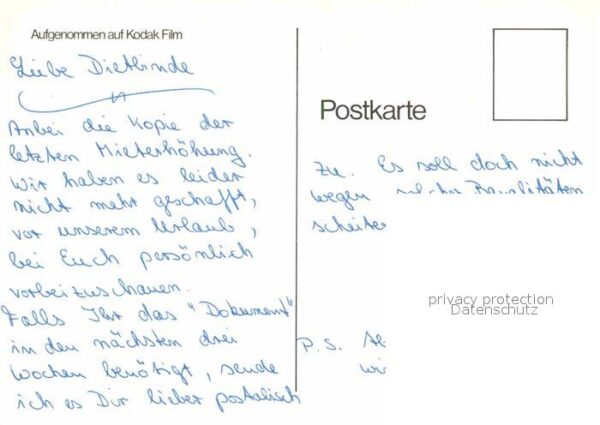 Aufgenommen auf Kodak Film
Liebe Dietlinde
Anbei die Kopie der
letzten Mieterhöhung.
Wir haben es leider
nicht mehr geschafft,
vor unserem Urlaub,
bei Euch persönlich
vorbeizuschauen.
Falls Ihr das "Dokument"
in den nächsten drei
Wochen benötigt, sende
ich es Dir lieber postalisch
Postkarte
zu. Es soll doch nicht
wegen
scheiter
privacy protection
Datenschutz
P.S.